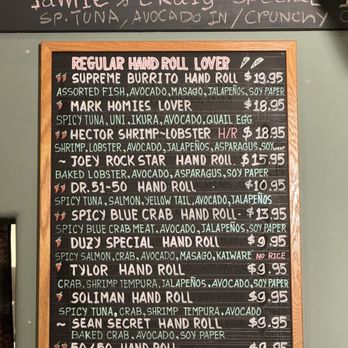 Jamie's Crazy Special
SP. TUNA, AVOCADO IN / CRUNCHY
REGULAR HAND ROLL LOVER
SUPREME BURRITO HAND ROLL $19.95
ASSORTED FISH, AVOCADO, MASAGO, JALAPEÑOS, SOY PAPER
MARK HOMIES LOVER $18.95
SPICY TUNA, UNI, IKURA, AVOCADO, QUAIL EGG
HECTOR SHRIMP-LOBSTER H/R $18.95
SHRIMP, LOBSTER, AVOCADO, JALAPEÑOS, ASPARAGUS, SOY
~ JOEY ROCK STAR HAND ROLL $15.95
BAKED LOBSTER, AVOCADO, ASPARAGUS, SOY PAPER
DR. 51-50 HAND ROLL $10.95
SPICY TUNA, SALMON, YELLOW TAIL, AVOCADO, JALAPEÑOS
SPICY BLUE CRAB HAND ROLL- $13.95
SPICY BLUE CRAB MEAT, AVOCADO, JALAPEÑOS, SOY PAPER
DUZY SPECIAL HAND ROLL $9.95
SPICY SALMON, CRAB, AVOCADO, MASAGO, KAIWARE NO RICE
TYLOR HAND ROLL $9.95
CRAB, SHRIMP TEMPURA, JALAPEÑOS, AVOCADO, SOY PAPER
SOLIMAN HAND ROLL $9.95
SPICY TUNA, CRAB, SHRIMP TEMPURA, AVOCADO
~ SEAN SECRET HAND ROLL $9.95
BAKED CRAB, AVOCADO, SOY PAPER
50/50 HAND ROLL $9.95